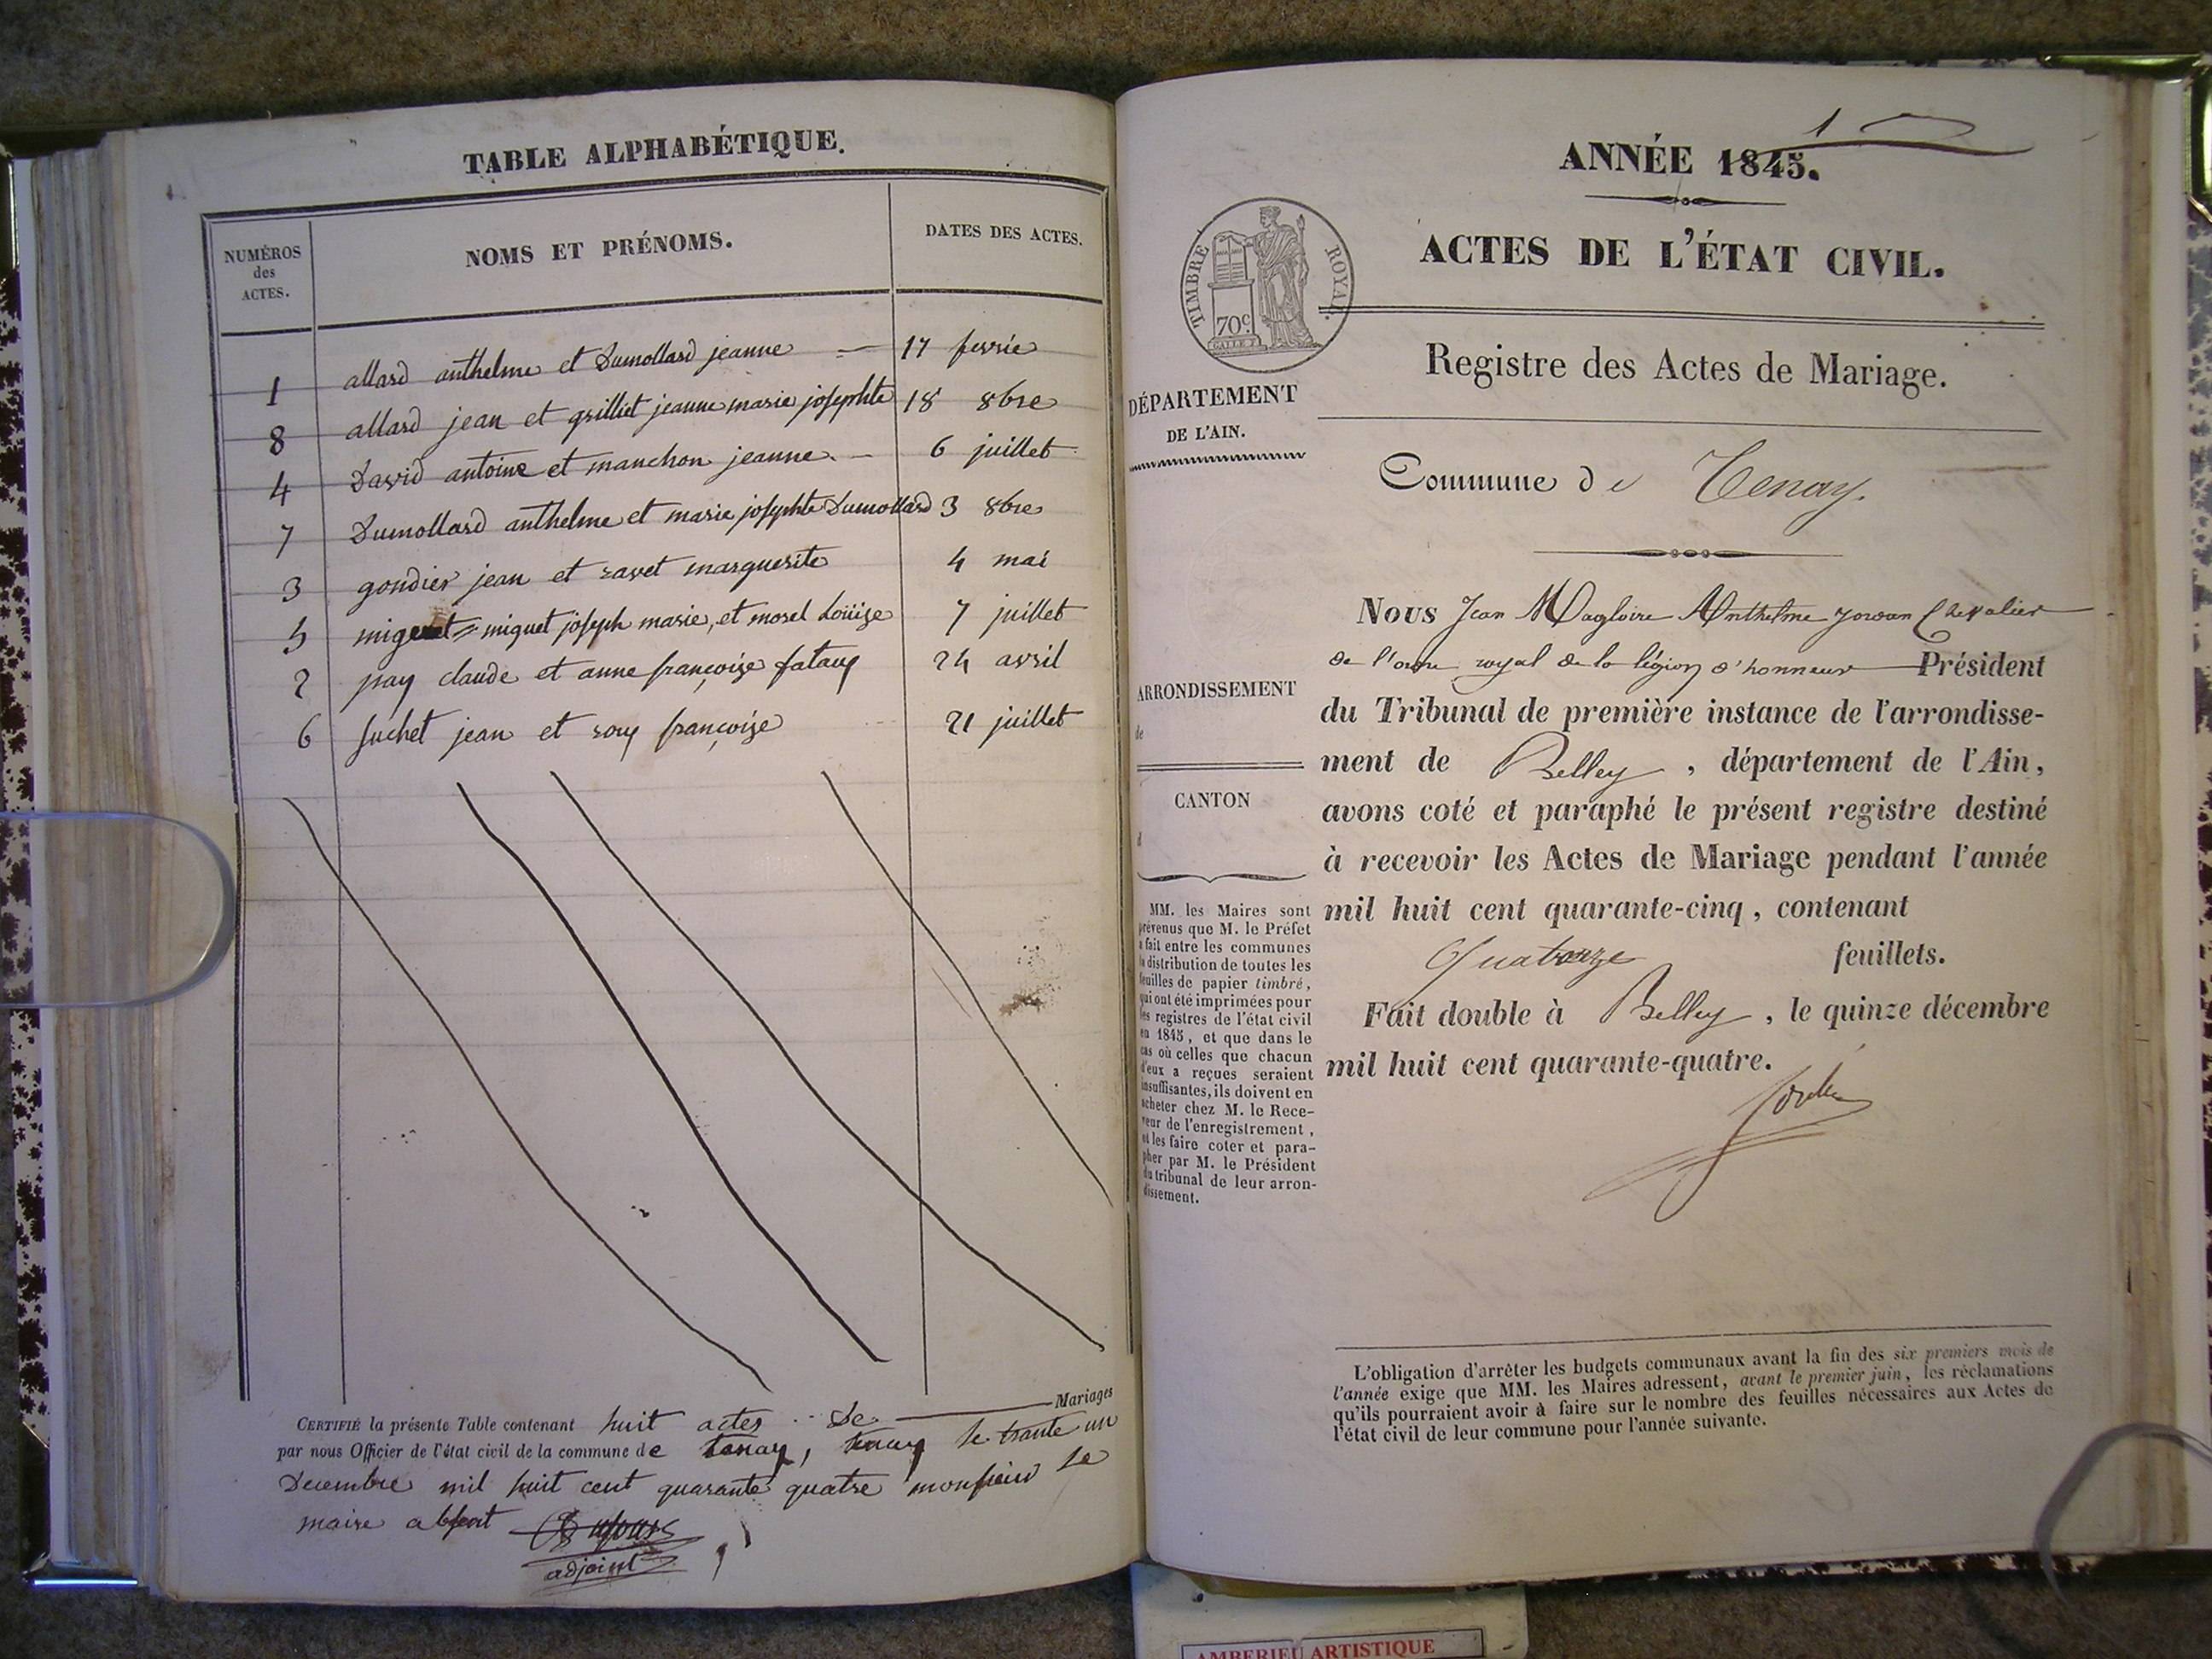 TABLE ALPHABÉTIQUE.
NUMÉROS
des
ACTES.
NOMS ET PRÉNOMS.
DATES DES ACTES.
1 allard anthelme et Dumollard jeanne 17 fevrie
8 allard jean et grilliet jeanne marie josephte 18 8bre
4 David antoine et manchon jeanne. 6 juillet
7 Dumollard anthelme et marie josephte Dumollard 3 8bre
3 gondier jean et ravet marguerite 4 mai
5 miguet joseph marie, et morel Loüise 7 juillet
2 pay claude et anne françoise 24 avril
6 suchet jean et roux françoise 21 juillet
Mariages
CERTIFIÉ la présente Table contenant huit actes de
par nous Officier de l'état civil de la commune de tenay, tenay le trante un
Decembre mil huit cent quarante quatre monsieur le
maire absent
adjoint
1
ANNÉE 1845.
ACTES DE L'ÉTAT CIVIL.
TIMBRE ROYAL.
70c.
Registre des Actes de Mariage.
DÉPARTEMENT
DE L'AIN.
Commune de Tenay.
Nous Jean Magloire Anthelme Chevalier
de l'ordre royal de la légion d'honneur Président
du Tribunal de première instance de l'arrondisse-
ment de Belley, département de l'Ain,
avons coté et paraphé le présent registre destiné
à recevoir les Actes de Mariage pendant l'année
mil huit cent quarante-cinq, contenant
Quatorze feuillets.
Fait double à Belley, le quinze décembre
mil huit cent quarante-quatre.
ARRONDISSEMENT
de
CANTON
d
MM. les Maires sont
prévenus que M. le Préfet
a fait entre les communes
la distribution de toutes les
feuilles de papier timbré,
qui ont été imprimées pour
les registres de l'état civil
en 1845, et que dans le
cas où celles que chacun
d'eux a reçues seraient
insuffisantes, ils doivent en
acheter chez M. le Rece-
veur de l'enregistrement,
et les faire coter et para-
pher par M. le Président
du tribunal de leur arron-
dissement.
L'obligation d'arrêter les budgets communaux avant la fin des six premiers mois de
l'année exige que MM. les Maires adressent, avant le premier juin, les réclamations
qu'ils pourraient avoir à faire sur le nombre des feuilles nécessaires aux Actes de
l'état civil de leur commune pour l'année suivante.
AMBERIEU ARTISTIQUE